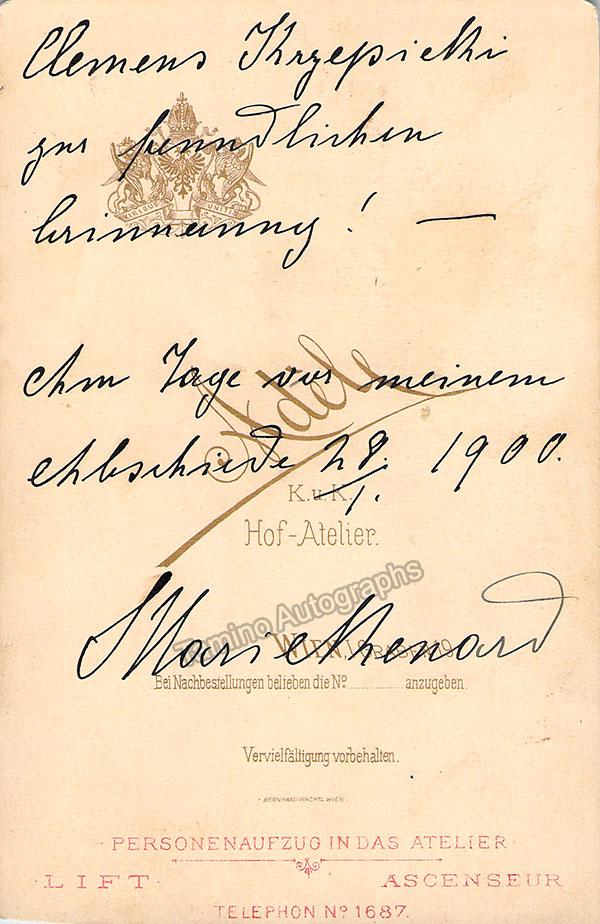 Clemens Krzepicki
zur freundlichen
VIRIBUS UNITIS
Erinnerung! —
Am Tage vor meinem
Adèle
Abschiede 28./1. 1900.
K.u.K.
Hof-Atelier.
Marie Renard
Tamino Autographs
WIEN, GRABEN 19.
Bei Nachbestellungen belieben die Nº ............... anzugeben.
Vervielfältigung vorbehalten.
BERNHARD WACHTL WIEN
PERSONENAUFZUG IN DAS ATELIER
LIFT ASCENSEUR
TELEPHON Nº 1687.